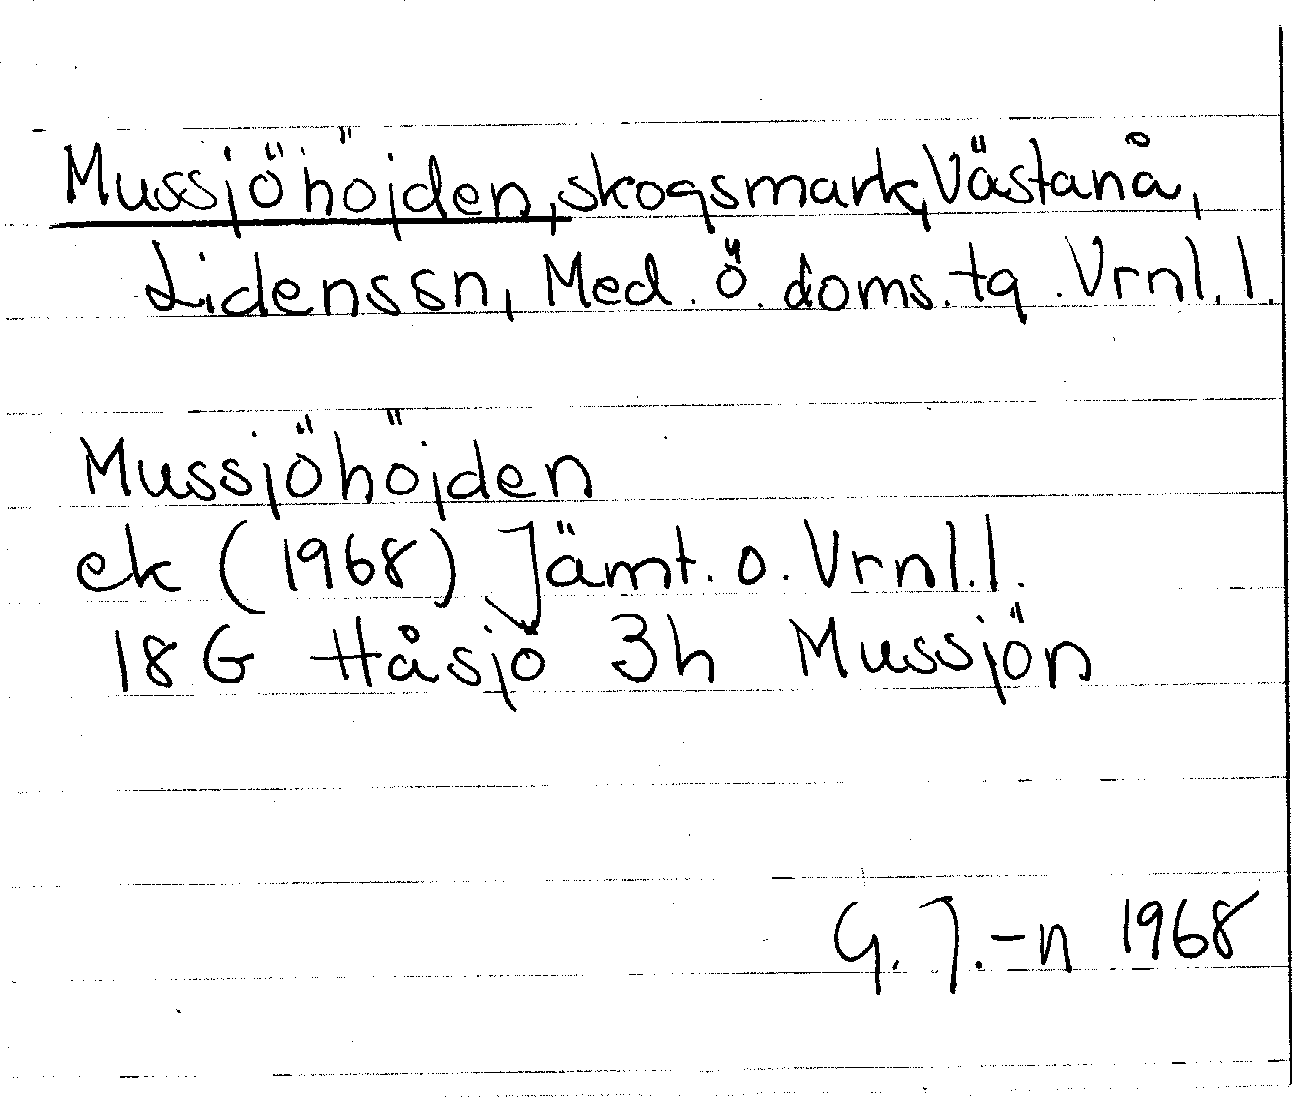 Mussjöhöjden, skogsmark, Västanå,
Lidenssn, Med. ö. doms. tg. Vrnl. l.
Mussjöhöjden
ek (1968) Jämt. o. Vrnl. l.
18 G Håsjö 3h Mussjön
G. J.-n 1968